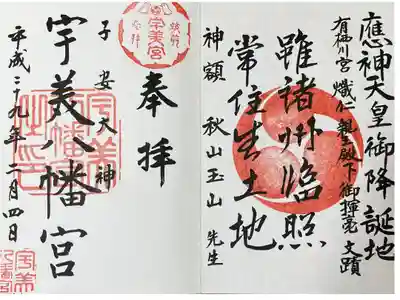 應神天皇御降誕地
有栖川宮熾仁親王殿下御揮毫文蹟
雖諸州臨照
常住生土地
神額 秋山玉山 先生
宇美宮
奉拝
子安大神
宇美八幡宮
平成二十九年二月四日